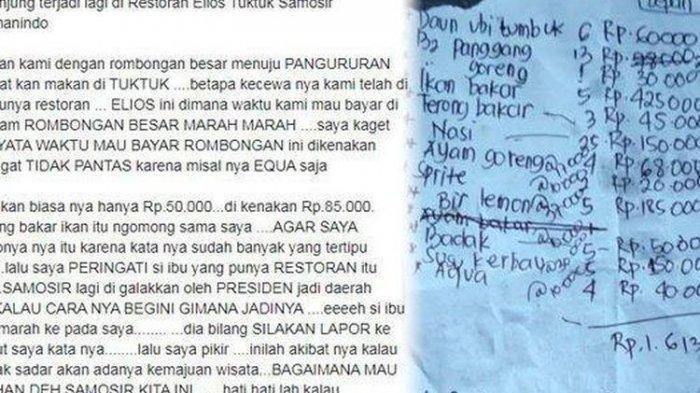 njung terjadi lagi di Restoran Elios Tuktuk Samosir
manindo
an kami dengan rombongan besar menuju PANGURURAN
at kan makan di TUKTUK ....betapa kecewa nya kami telah di
unya restoran ... ELIOS ini dimana waktu kami mau bayar di
am ROMBONGAN BESAR MARAH MARAH ....saya kaget
YATA WAKTU MAU BAYAR ROMBONGAN ini dikenakan
gat TIDAK PANTAS karena misal nya EQUA saja
kan biasa nya hanya Rp.50.000...di kenakan Rp.85.000.
ng bakar ikan itu ngomong sama saya ....AGAR SAYA
onya nya itu karena kata nya sudah banyak yang tertipu
..lalu saya PERINGATI si ibu yang punya RESTORAN itu
.SAMOSIR lagi di galakkan oleh PRESIDEN jadi daerah
KALAU CARA NYA BEGINI GIMANA JADINYA ....eeeeh si ibu
marah ke pada saya........ ....dia bilang SILAKAN LAPOR ke
ut saya kata nya.......lalu saya pikir ....inilah akibat nya kalau
ak sadar akan adanya kemajuan wisata...BAGAIMANA MAU
HAN DEH SAMOSIR KITA INI ..... hati hati lah kalau
Daun ubi tumbuk 6 Rp. 60000
B2 panggang 13 Rp.
goreng 1 Rp. 30 000
Ikan bakar 5 Rp. 425 000
Terong bakar 3 Rp. 45 000
Nasi 25 Rp. 150.000
Ayam goreng 4 Rp. 68.000
Sprite 2 Rp. 20 000
Bir lemon 5 Rp. 185 000
Ayam bakar
Badak 5 Rp. 50.000
Susu kerbau 5 Rp. 150 000
Aqua 4 Rp. 40 000
Rp. 1. 613